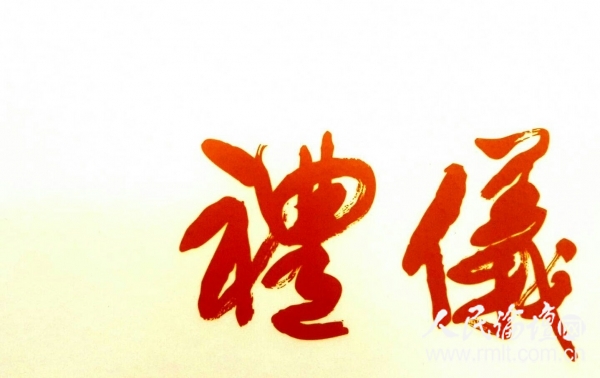 禮儀
人民論壇网
www.rmlt.com.cn